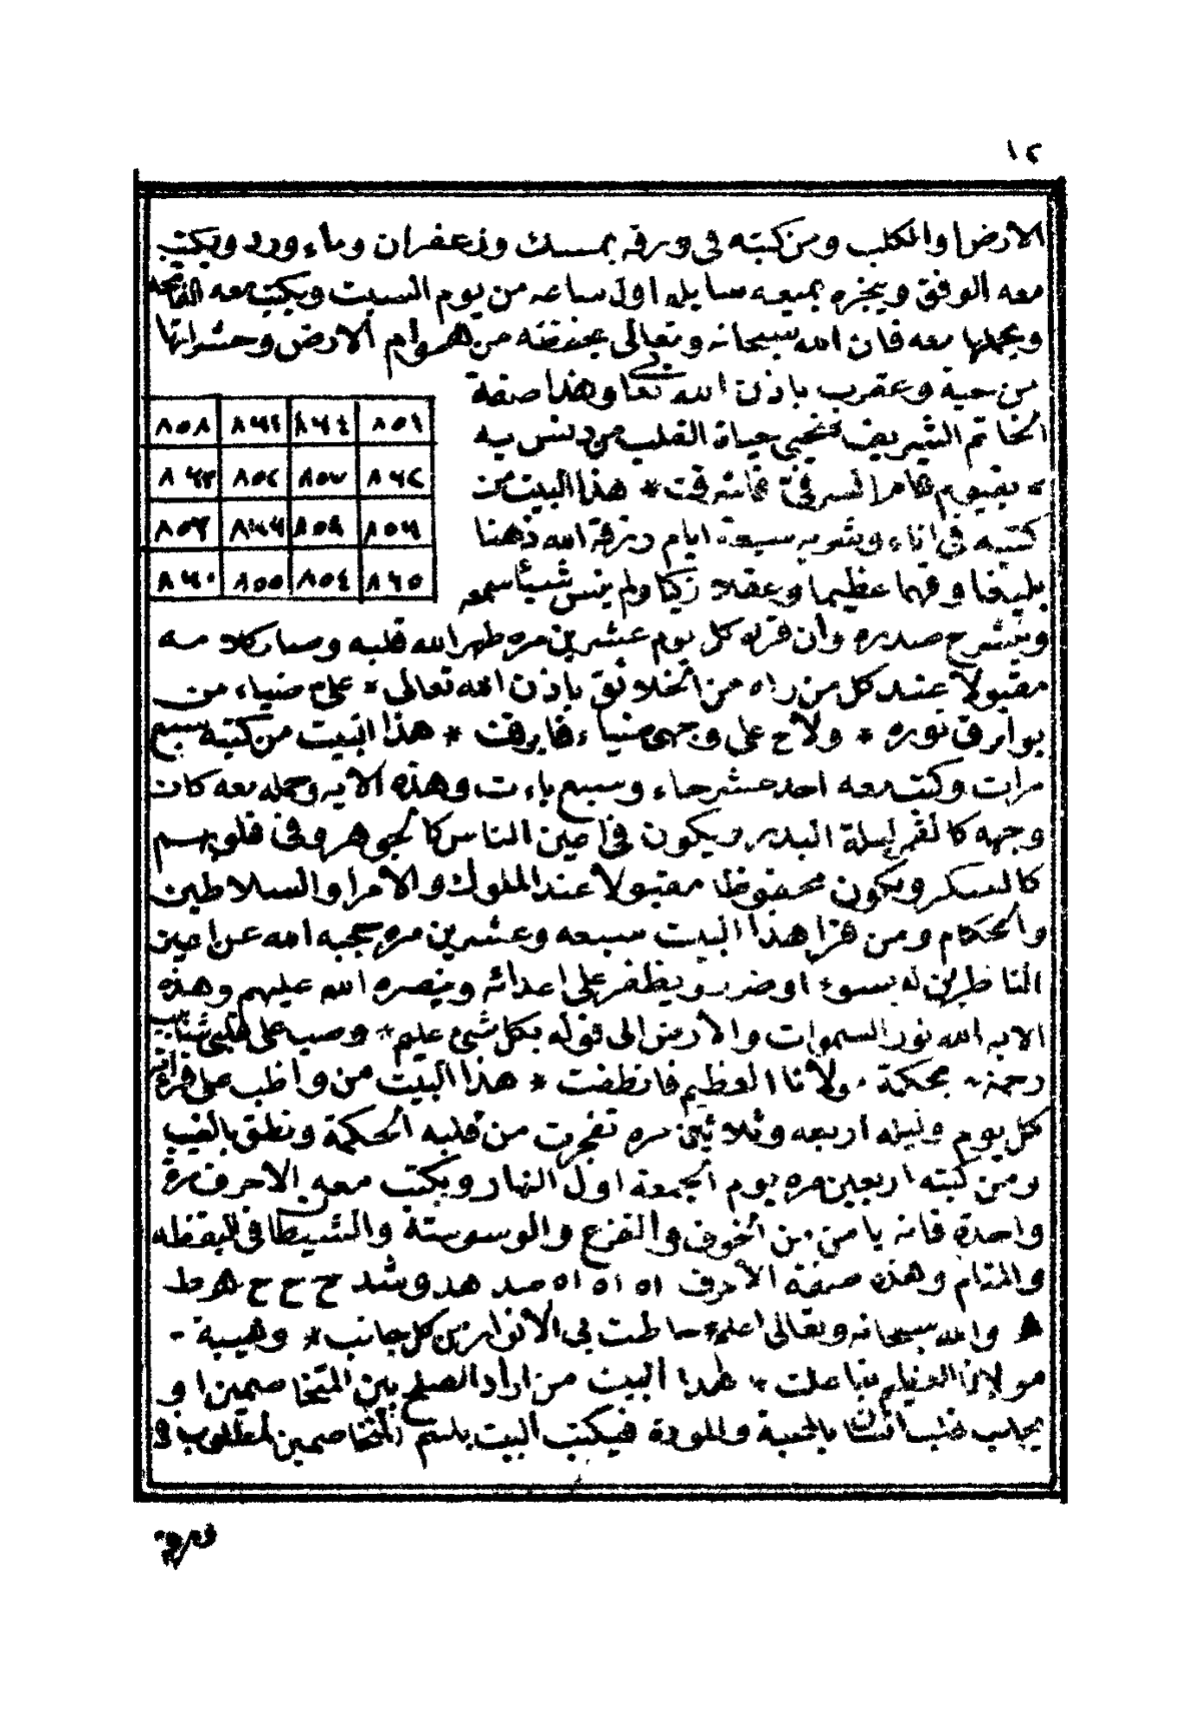 ١٢
الارض والكلب ومن كتبه فى ورقه بمسك وزعفران وماء ورد ويكتب
معه الوفق ويبخره بميعه سايله اول ساعه من يوم السبت ويكتب معه الفاتحه
ويحملها معه فان الله سبحانه وتعالى يحفظه من هوام الارض وحشراتها
من حية وعقرب باذن الله تعا وهذا صفة
٨٥٨ ٨٦١ ٨٦٤ ٨٥١
الخاتم الشريف فتحيى حياة القلب من دنس به
٨٦٣ ٨٥٢ ٨٥٧ ٨٦٢
بقيوم قام السر فى فاشرقت * هذا البيت من
٨٥٣ ٨٦٦ ٨٥٩ ٨٥٦
كتبه فى اناء وشربه سبعة ايام رزقه الله ذهنا
٨٦٠ ٨٥٥ ٨٥٤ ٨٦٥
بليغا وفهما عظيما وعقلا زكيا ولم ينس شيئا سمعه
وينشرح صدره وان قراه كل يوم عشرين مره طهر الله قلبه وصار كلامه
مقبولا عند كل من راه من الخلائق باذن الله تعالى * على ضياء من
بوارق نوره * ولاح على وجهى ضياء فابرقت * هذا البيت من كتبه سبع
مرات وكتب معه احد عشر حاء وسبع باءت وهذه الايه وحمله معه كان
وجهه كالقمر ليلة البدر ويكون فى اعين الناس كالجوهر وفى قلوبهم
كالسكر ويكون محفوظا مقبولا عند الملوك والامرا والسلاطين
والحكام ومن قرا هذا البيت سبعه وعشرين مره حجبه الله عن اعين
الناظرين له بسوء او ضرر ويظفر على اعدائه وينصره الله عليهم وهذه
الايه الله نور السموات والارض الى قوله بكل شئ عليم * وصب على قلبى شئابيب
رحمة * بحكمة مولانا العظيم فانطقت * هذا البيت من واظب على قرائته
كل يوم وليله اربعه وثلاثين مره تفجرت من قلبه الحكمة ونطق بالغيب
ومن كتبه اربعين مره يوم الجمعة اول النهار ويكتب معه الاحرف مرة
واحدة فانه يامن من الخوف والفزع والوسوسة والشيطان فى اليقظه
والمنام وهذه صفة الاحرف اه اه اه اه صد هد وشد ح ح ح ح هرط
والله سبحانه وتعالى اعلم * احاطت بى الانوار من كل جانب * وهيبة
مولانا العظيم بنا علت * هذا البيت من اراد الصلح بين المتخاصمين او
يجلب قلب انسان بالمحبة والمودة فيكتب البيت باسم المتخاصمين لمطلوب فى